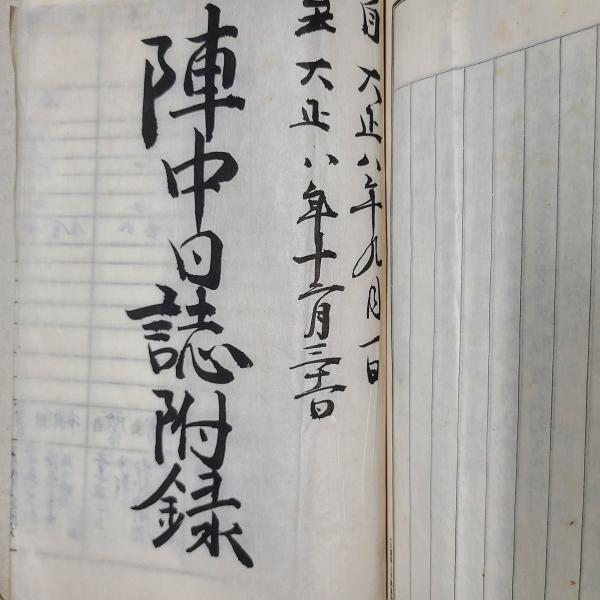 自大正八年九月一日
至大正八年十二月三十一日
陣中日誌附録